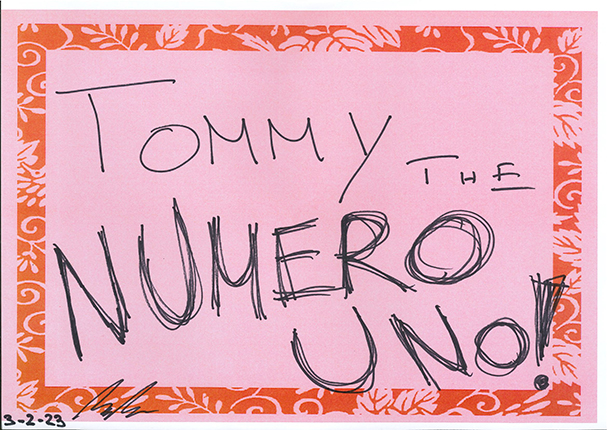 TOMMY THE
NUMERO
UNO!
3-2-23